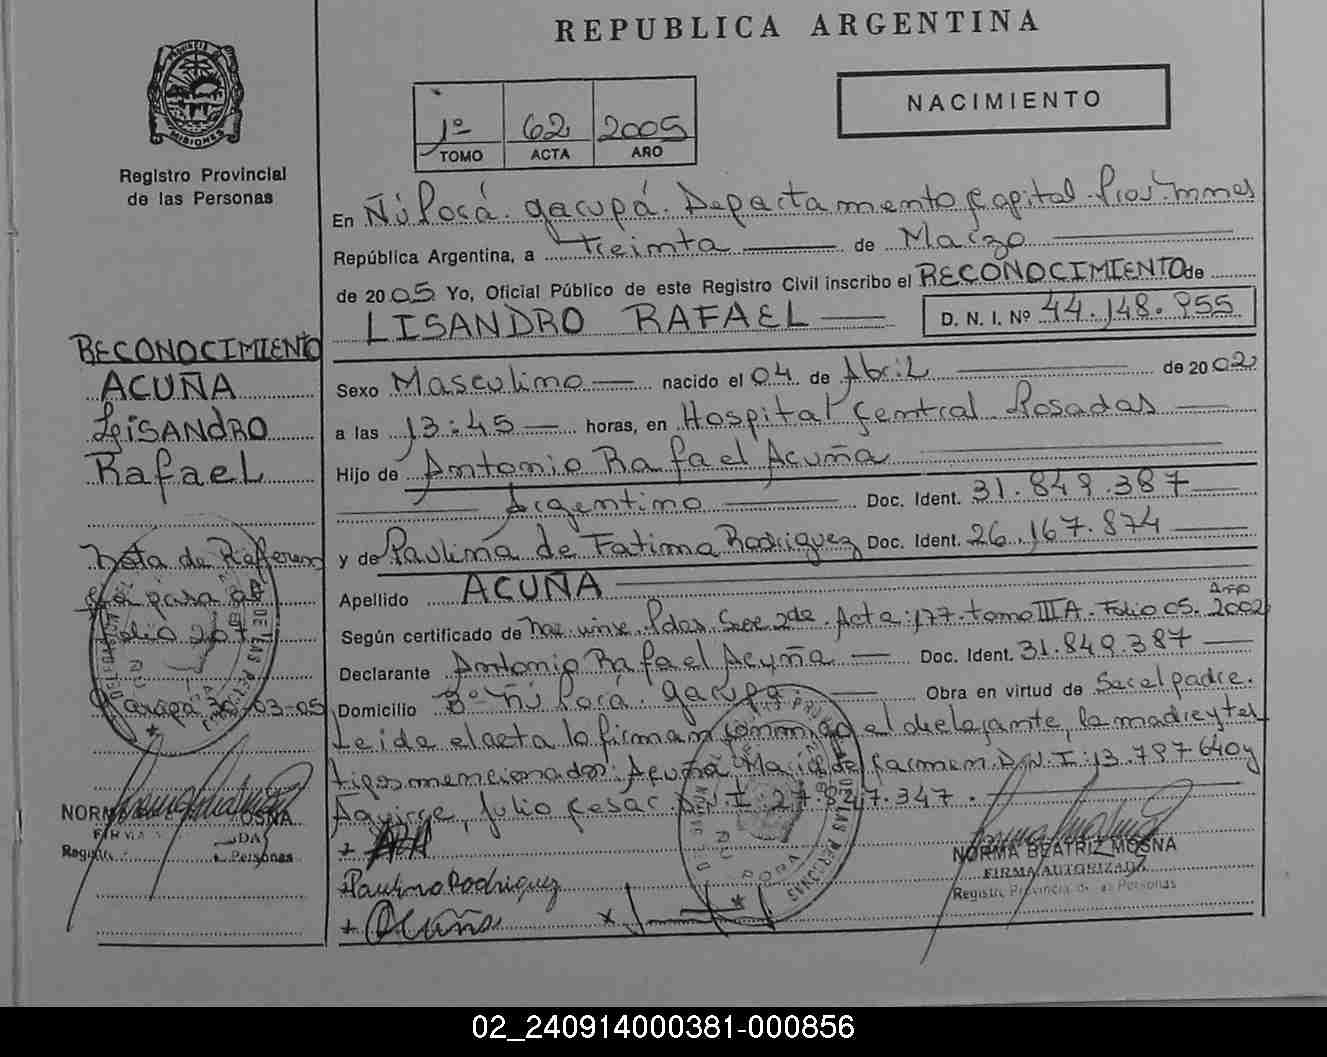 REPUBLICA ARGENTINA
PROVINCIA DE
MISIONES
Registro Provincial
de las Personas
1º 62 2005
TOMO ACTA AÑO
NACIMIENTO
En Ñú Porá. Garupá. Departamento Capital. Prov. Mnes
República Argentina, a treinta de Marzo
de 2005 Yo, Oficial Público de este Registro Civil inscribo el RECONOCIMIENTO de
LISANDRO RAFAEL D. N. I. Nº 44.148.955
Sexo Masculino nacido el 04 de Abril de 2002
a las 13:45 horas, en Hospital Central Posadas
Hijo de Antonio Rafael Acuña
Argentino Doc. Ident. 31.849.387
y de Paulina de Fatima Rodriguez Doc. Ident. 26.167.874
Apellido ACUÑA
Según certificado de Pdas. Secc 2da. Acta: 177. tomo III A. Folio 05. Año 2002
Declarante Antonio Rafael Acuña Doc. Ident. 31.849.387
Domicilio Bº Ñú Porá. Garupa. Obra en virtud de Ser el padre.
Leida el acta la firman conmigo el declarante, la madre y tes
tigos mencionados: Acuña Maria del Carmen D.N.I: 13.797640 y
Aguirre, Julio Cesar D.N.I 27.847.347.
Paulina Rodriguez
Acuña
NORMA BEATRIZ MOSNA
FIRMA AUTORIZADA
Registro Provincial de las Personas
RECONOCIMIENTO
ACUÑA
LiSANDRO
RafaeL
Nota de Referen
cia para al
Folio 207
Garupá 30-03-05
NORMA MOSNA
FIRMA DA
Registro Personas
02_240914000381-000856